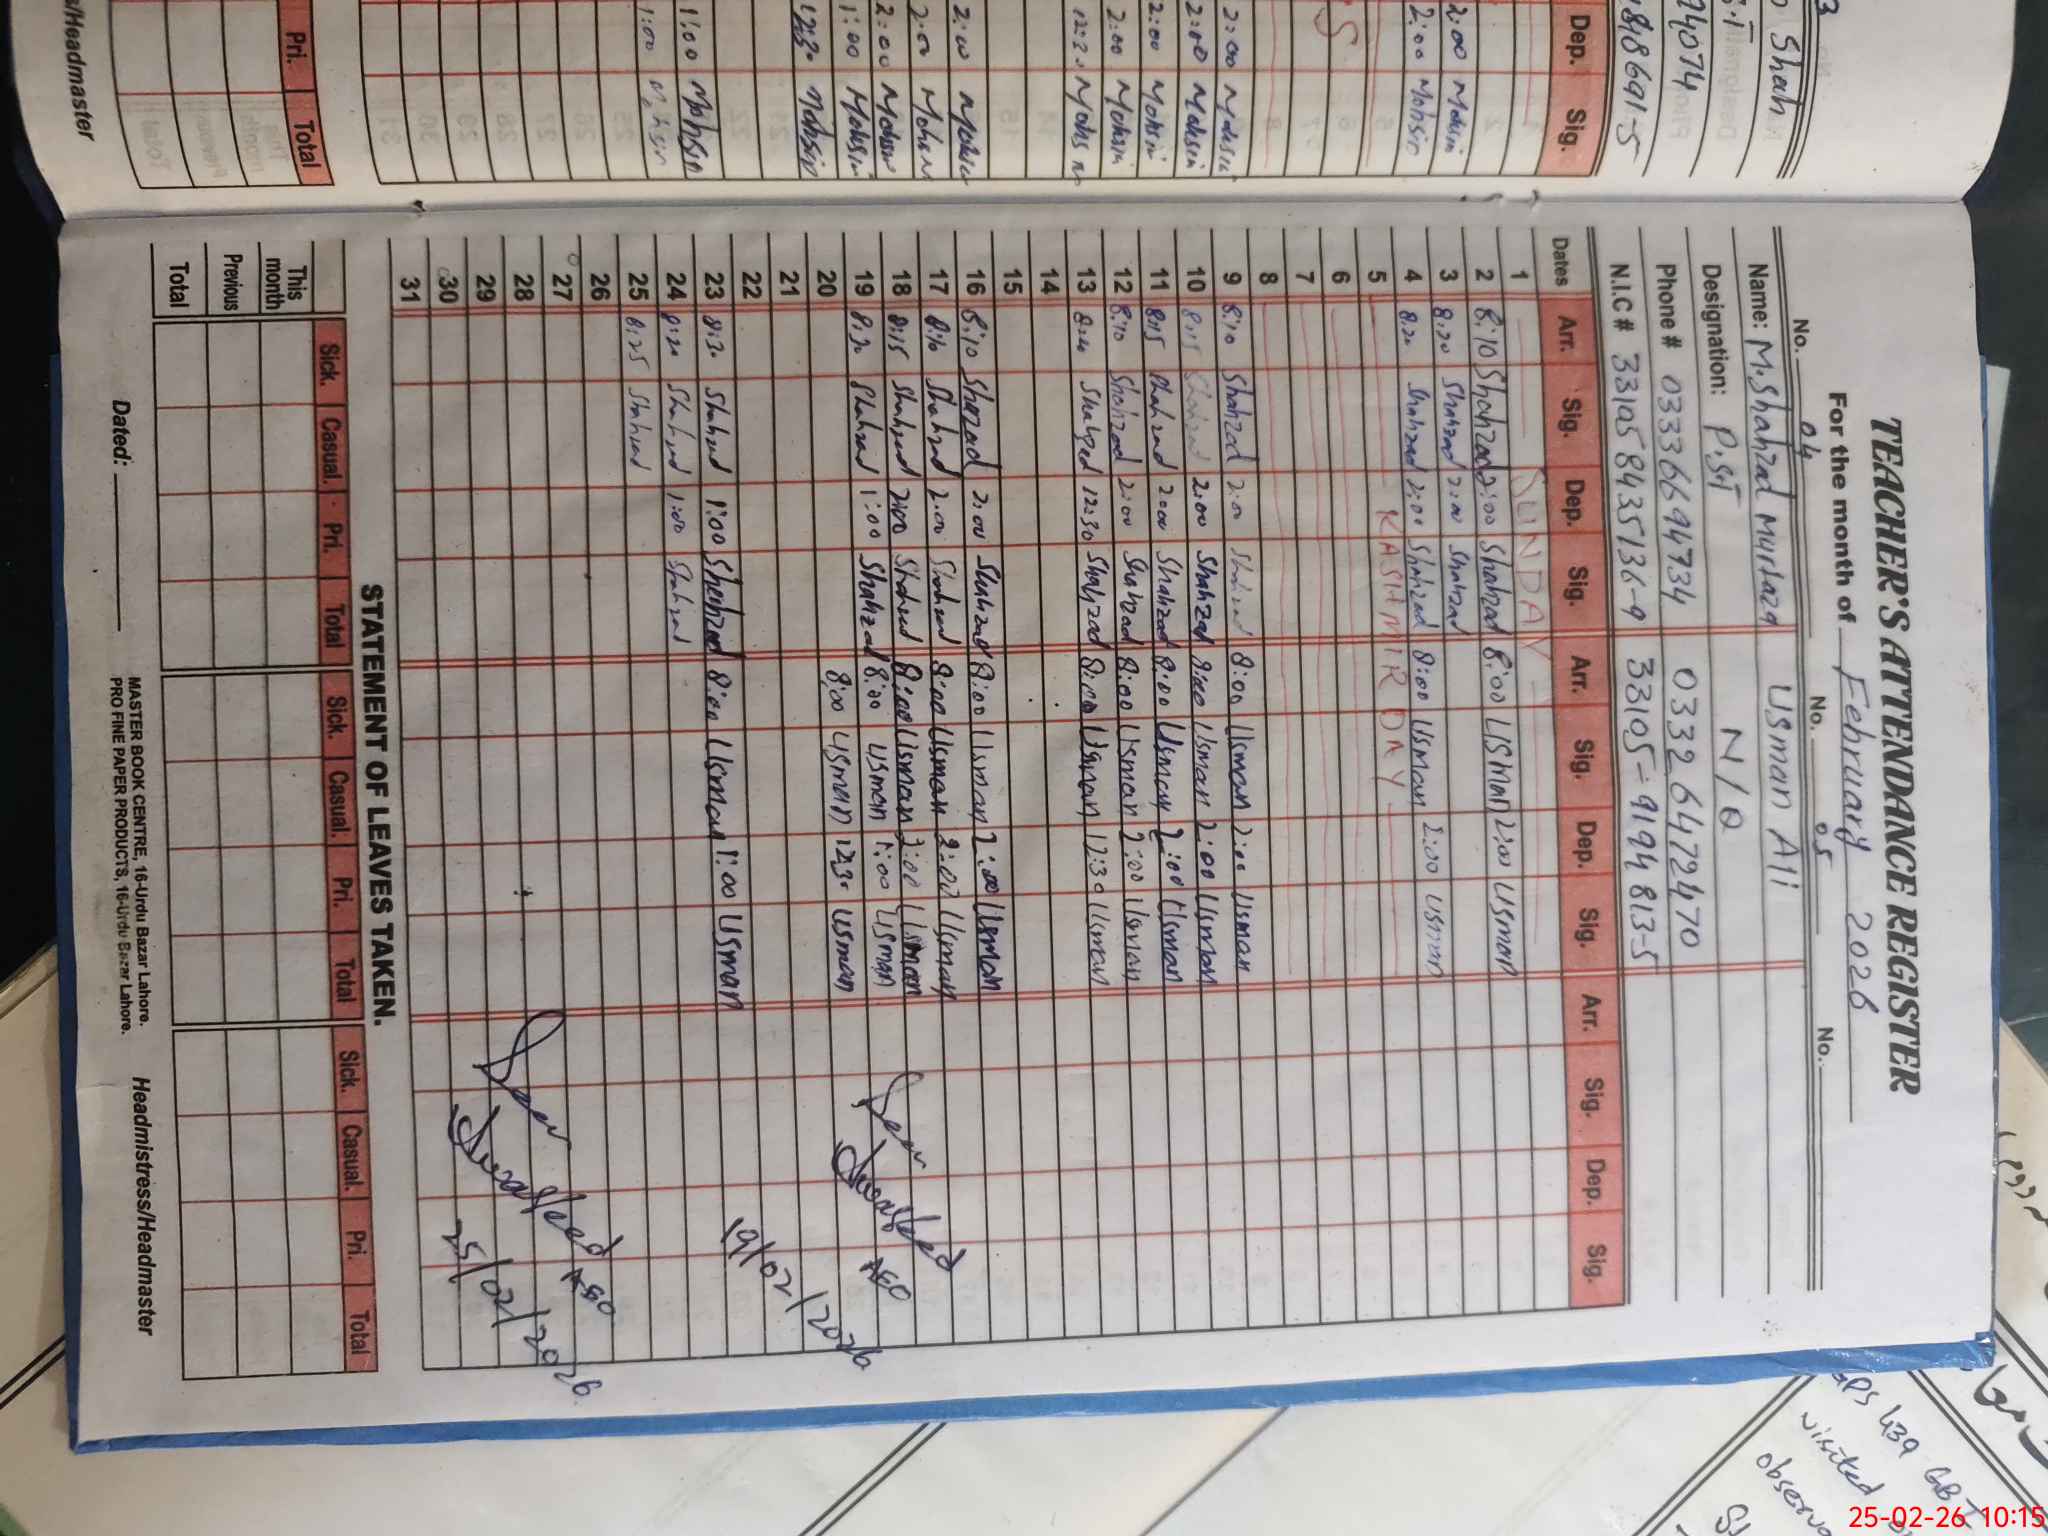 TEACHER'S ATTENDANCE REGISTER
For the month of February 2026
No. 04 No. 05 No.
Name: M.Shahzad Murtaza Usman Ali
Designation: P.ST N/Q
Phone # 03336694734 0332 6472470
N.I.C # 33105 8435136-9 33105-9194813-5
Dates Arr. Sig. Dep. Sig. Arr. Sig. Dep. Sig. Arr. Sig. Dep. Sig.
1 SUNDAY
2 8:10 Shahzad 2:00 Shahzad 8:00 Usman 2:00 Usman
3 8:20 Shahzad 2:00 Shahzad
4 8:20 Shahzad 2:00 Shahzad 8:00 Usman 2:00 Usman
5 KASHMIR DAY
6
7
8
9 8:10 Shahzad 2:00 Shahzad 8:00 Usman 2:00 Usman
10 8:15 Shahzad 2:00 Shahzad 8:00 Usman 2:00 Usman
11 8:15 Shahzad 2:00 Shahzad 8:00 Usman 2:00 Usman
12 8:10 Shahzad 2:00 Shahzad 8:00 Usman 2:00 Usman
13 Shahzad 12:30 Shahzad 8:00 Usman 12:30 Usman
14
15
16 8:10 Shahzad 2:00 Shahzad 8:00 Usman 2:00 Usman
17 8:10 Shahzad 2:00 Shahzad 8:00 Usman 2:00 Usman
18 8:15 Shahzad 2:00 Shahzad 8:00 Usman 2:00 Usman
19 8:30 Shahzad 1:00 Shahzad 8:00 Usman 1:00 Usman
20 8:00 Usman 12:30 Usman
21
22
23 8:30 Shahzad 1:00 Shahzad 8:00 Usman 1:00 Usman
24 8:20 Shahzad 1:00 Shahzad
25 8:25 Shahzad
26
27
28
29
30
31
Seen
19/02/2026
Seen
25/02/2026
STATEMENT OF LEAVES TAKEN.
Sick. Casual. Pri. Total Sick. Casual. Pri. Total Sick. Casual. Pri. Total
This month
Previous
Total
MASTER BOOK CENTRE, 16-Urdu Bazar Lahore.
PRO FINE PAPER PRODUCTS, 16-Urdu Bazar Lahore.
Dated: Headmistress/Headmaster
Shah
94074
848691-5
Dep. Sig.
2:00 Mohsin
2:00 Mohsin
2:00 Mohsin
2:00 Mohsin
2:00 Mohsin
2:00 Mohsin
12:30 Mohsin
2:00 Mohsin
2:00 Mohsin
2:00 Mohsin
1:00 Mohsin
12:30 Mohsin
1:00 Mohsin
1:00 Mohsin
Pri. Total
/Headmaster
GPS 439 GB
visited
25-02-26 10:15